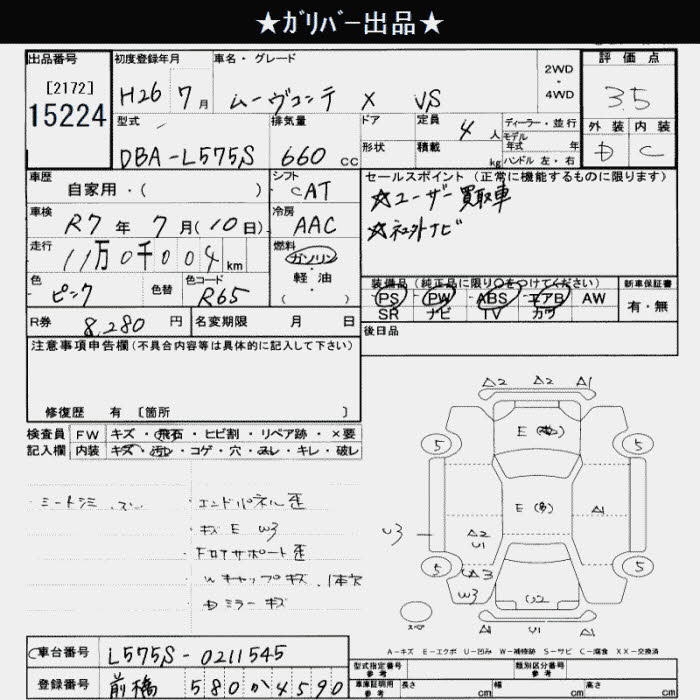 ★ガリバー出品★
出品番号 初度登録年月 車名・グレード 2WD・4WD 評価点
[2172]
15224
H26 7月 ムーヴコンテ X VS 3.5
型式 排気量 ドア 定員 4人 ディーラー・並行 外装 内装
モデル年式 年
DBA-L575S 660cc 形状 積載 kg ハンドル 左・右 D C
車歴 シフト セールスポイント(正常に機能するものに限ります)
自家用・( ) CAT ☆ユーザー買取車
車検 冷房 ☆社外ナビ
R7年 7月(10日) AAC
走行 燃料
11万0千004km ガソリン
軽油
( )
色 色替 色コード 装備品(純正品に限り○をつけてください) 新車保証書
ピンク R65 PS PW ABS エアB AW 有・無
SR ナビ TV カワ
R券 8,280円 名変期限 月 日 後日品
注意事項申告欄(不具合内容等は具体的に記入して下さい)
修復歴 有 〔箇所 〕
検査員 FW キズ・飛石・ヒビ割・リペア跡・×要
記入欄 内装 キズ・汚レ・コゲ・穴・スレ・キレ・破レ
エンドパネル歪
キズE W3
FロアサポートE歪
Wキャップキズ、1本欠
Dミラーキズ
A2 A2 A1
E
5 5
E
A1
U3
A2
U1
5 5
A3
W3
U2
スペア
A1 U1 A1
A-キズ E-エクボ U-凹み W-補修跡 S-サビ C-腐食 XX-交換済
車台番号 L575S-0211545
型式指定番号 参考 類別区分番号 参考
登録番号 前橋 580か4590
車庫証明用 参考 長さ cm 幅 cm 高さ cm